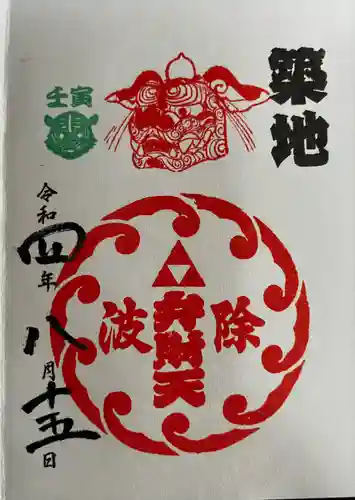 築地
壬寅
除
弁財天
波
令和四年八月十五日